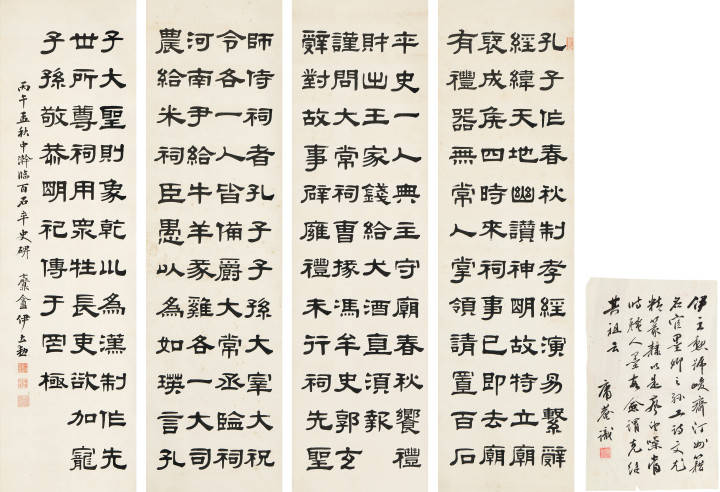 孔子作春秋制孝經演易繫辭
經緯天地幽讚神明故特立廟
褒成侯四時來祠事已即去廟
有禮器無常人掌領請置百石
卒史一人典主守廟春秋饗禮
財出王家錢給犬酒直須報
謹問大常祠曹掾馮牟史郭玄
辭對故事辟廱禮未行祠先聖
師侍祠者孔子子孫大宰大祝
令各一人皆備爵大常丞臨祠
河南尹給牛羊豕雞各一大司
農給米祠臣愚以為如瑛言孔
子大聖則象乾坤為漢制作先
世所尊祠用眾牲長吏欲加寵
子孫敬恭明祀傳于罔極
丙午孟秋中澣臨百石卒史碑 盦伊立勳
伊立勳號峻齋汀州籍
名宦墨卿之孫工詩文尤
精篆隸以是噪當
時騷人墨客僉謂克紹
其祖云
庸菴識